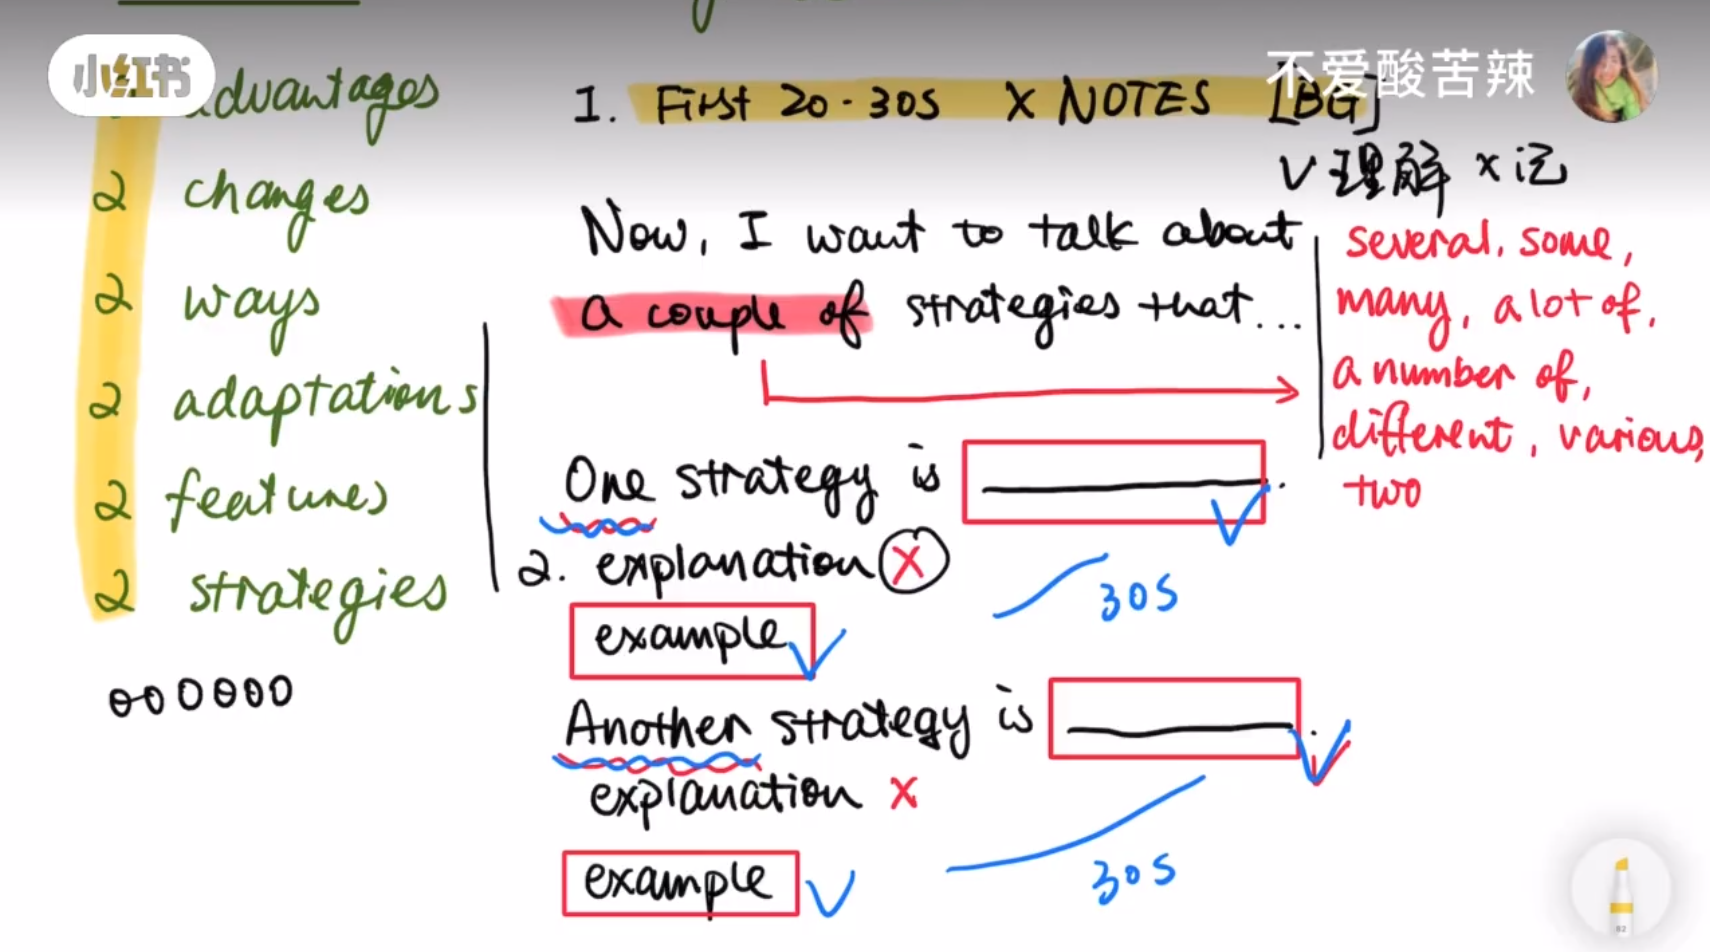 小红书
不爱酸苦辣
advantages
2 changes
2 ways
2 adaptations
2 features
2 strategies
000000
1. First 20-30s X NOTES [BG]
V 理解 X 记
Now, I want to talk about
a couple of strategies that...
several, some,
many, a lot of,
a number of,
different, various,
two
One strategy is ____.
2. explanation X
30s
example
Another strategy is ____.
explanation X
30s
example
62